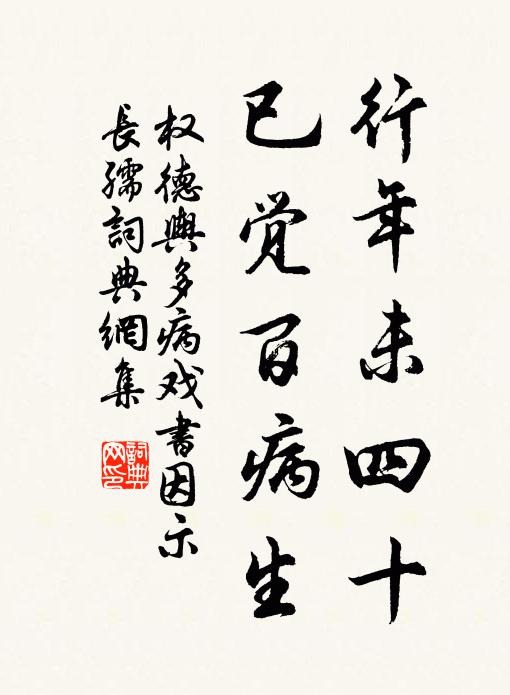 行年未四十
已觉百病生
权德舆多病戏书因示
长孺词典網集
詞典网印